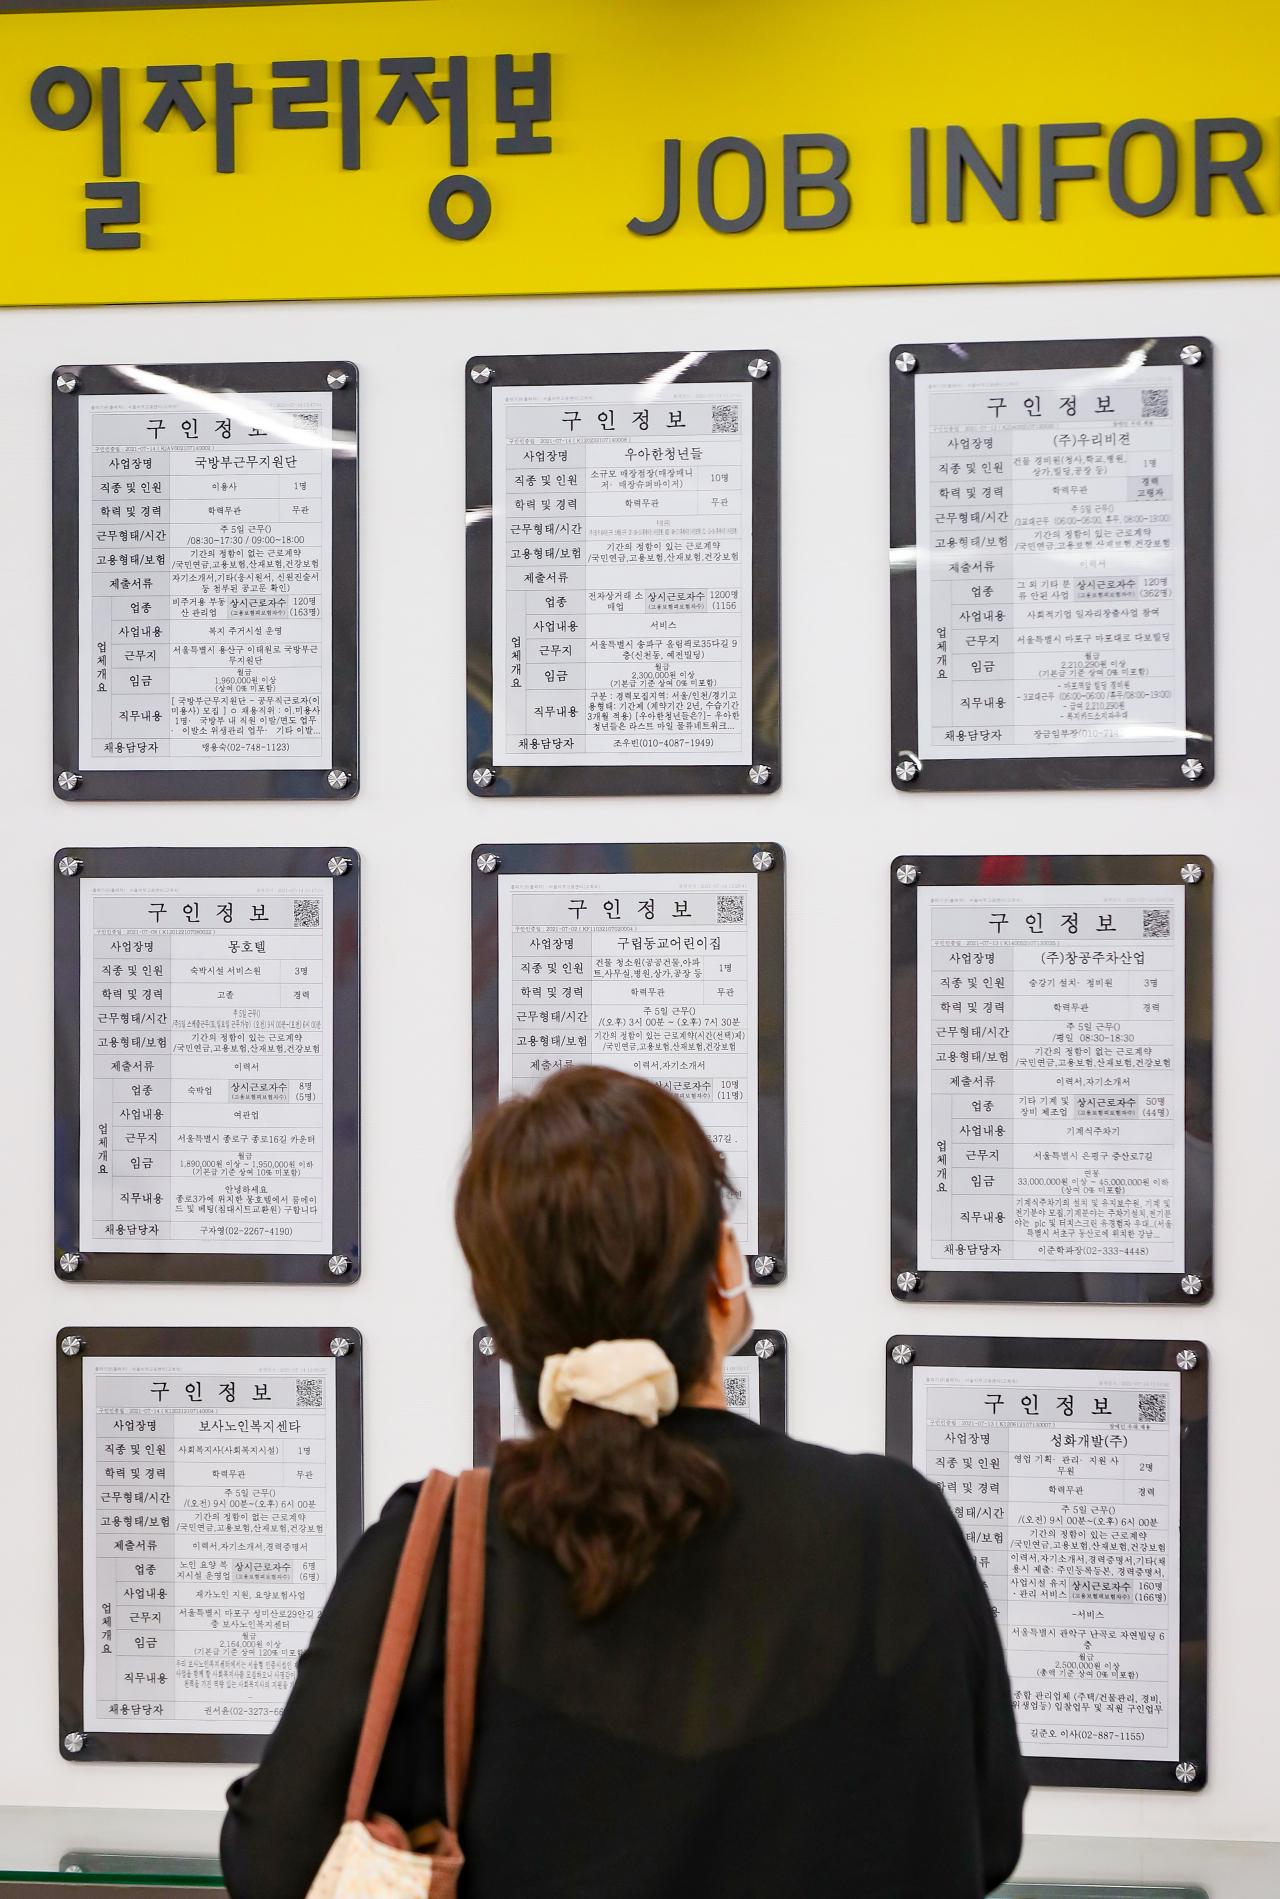 일자리정보
JOB INFOR
구 인 정 보
사업장명 국방부근무지원단
직종 및 인원 이용사 1명
학력 및 경력 학력무관 무관
근무형태/시간 주 5일 근무()
/08:30~17:30 / 09:00~18:00
고용형태/보험 기간의 정함이 없는 근로계약
/국민연금,고용보험,산재보험,건강보험
제출서류 자기소개서,기타(응시원서, 신원진술서
등 첨부된 공고문 확인)
업체개요
업종 비주거용 부동산 관리업 상시근로자수 120명
(고용보험피보험자수) (163명)
사업내용 복지 주거시설 운영
근무지 서울특별시 용산구 이태원로 국방부근
무지원단
임금 월급
1,960,000원 이상
(상여 0% 미포함)
직무내용 [ 국방부근무지원단 - 공무직근로자(이
미용사) 모집 ] ㅇ 채용직위 : 이.미용사
1명· 국방부 내 직원 이발/면도 업무
· 이발소 위생관리 업무· 기타 이발...
채용담당자 맹용숙(02-748-1123)
구 인 정 보
사업장명 우아한청년들
직종 및 인원 소규모 매장점장(매장매니
저· 매장슈퍼바이저) 10명
학력 및 경력 학력무관 무관
근무형태/시간
고용형태/보험 기간의 정함이 있는 근로계약
/국민연금,고용보험,산재보험,건강보험
제출서류
업체개요
업종 전자상거래 소매업 상시근로자수 1200명
(고용보험피보험자수) (1156
사업내용 서비스
근무지 서울특별시 송파구 올림픽로35다길 9
층(신천동, 예전빌딩)
임금 월급
2,300,000원 이상
(기본급 기준 상여 0% 미포함)
직무내용 구분 : 경력모집지역: 서울/인천/경기고
용형태: 기간제 (계약기간 2년, 수습기간
3개월 적용) [우아한청년들은?]- 우아한
청년들은 라스트 마일 물류네트워크...
채용담당자 조우빈(010-4087-1949)
구 인 정 보
사업장명 (주)우리비젼
직종 및 인원 건물 경비원(청사,학교,병원,
상가,빌딩,공장 등) 1명
학력 및 경력 학력무관 경력
고령자
근무형태/시간 주 5일 근무()
/3교대근무 (06:00~06:00, 휴무, 08:00~19:00)
고용형태/보험 기간의 정함이 있는 근로계약
/국민연금,고용보험,산재보험,건강보험
제출서류 이력서
업체개요
업종 그 외 기타 분류 안된 사업 상시근로자수 120명
(고용보험피보험자수) (362명)
사업내용 사회적기업 일자리창출사업 참여
근무지 서울특별시 마포구 마포대로 다보빌딩
임금 월급
2,210,290원 이상
(기본급 기준 상여 0% 미포함)
직무내용 - 마포역앞 빌딩 경비원
- 3교대근무 (06:00~06:00/휴무/08:00~19:00)
- 급여 2,210,290원
- 복지카드소지자우대
채용담당자 장금임부장(010-714
구 인 정 보
사업장명 몽호텔
직종 및 인원 숙박시설 서비스원 3명
학력 및 경력 고졸 경력
근무형태/시간 주 5일 근무()
고용형태/보험 기간의 정함이 있는 근로계약
/국민연금,고용보험,산재보험,건강보험
제출서류 이력서
업체개요
업종 숙박업 상시근로자수 8명
(고용보험피보험자수) (5명)
사업내용 여관업
근무지 서울특별시 종로구 종로16길 카운터
임금 월급
1,890,000원 이상 ~ 1,950,000원 이하
(기본급 기준 상여 10% 미포함)
직무내용 안녕하세요
종로3가에 위치한 몽호텔에서 룸메이
드 및 베팅(침대시트교환원) 구합니다
채용담당자 구자영(02-2267-4190)
구 인 정 보
사업장명 구립동교어린이집
직종 및 인원 건물 청소원(공공건물,아파
트,사무실,병원,상가,공장 등 1명
학력 및 경력 학력무관 무관
근무형태/시간 주 5일 근무()
/(오후) 3시 00분 ~ (오후) 7시 30분
고용형태/보험 기간의 정함이 있는 근로계약(시간(선택)제)
/국민연금,고용보험,산재보험,건강보험
제출서류 이력서,자기소개서
상시근로자수 10명
(고용보험피보험자수) (11명)
로37길 .
구 인 정 보
사업장명 (주)창공주차산업
직종 및 인원 승강기 설치· 정비원 3명
학력 및 경력 학력무관 경력
근무형태/시간 주 5일 근무()
/평일 08:30-18:30
고용형태/보험 기간의 정함이 없는 근로계약
/국민연금,고용보험,산재보험,건강보험
제출서류 이력서,자기소개서
업체개요
업종 기타 기계 및 장비 제조업 상시근로자수 50명
(고용보험피보험자수) (44명)
사업내용 기계식주차기
근무지 서울특별시 은평구 증산로7길
임금 연봉
33,000,000원 이상 ~ 45,000,000원 이하
(상여 0% 미포함)
직무내용 기계식주차기의 설치 및 유지보수원, 기계 및
전기분야 모집.기계분야는 주차기설치,전기분
야는 plc 및 터치스크린 유경험자 우대..(서울
특별시 서초구 동산로에 위치한 강남...
채용담당자 이준학과장(02-333-4448)
구 인 정 보
사업장명 보사노인복지센타
직종 및 인원 사회복지사(사회복지시설) 1명
학력 및 경력 학력무관 무관
근무형태/시간 주 5일 근무()
/(오전) 9시 00분~(오후) 6시 00분
고용형태/보험 기간의 정함이 없는 근로계약
/국민연금,고용보험,산재보험,건강보험
제출서류 이력서,자기소개서,경력증명서
업체개요
업종 노인 요양 복지시설 운영업 상시근로자수 6명
(고용보험피보험자수) (6명)
사업내용 재가노인 지원, 요양보험사업
근무지 서울특별시 마포구 성미산로29안길 2
층 보사노인복지센터
임금 월급
2,164,000원 이상
(기본급 기준 상여 120% 미포함
직무내용
채용담당자 권서윤(02-3273-66
구 인 정 보
사업장명 성화개발(주)
직종 및 인원 영업 기획· 관리· 지원 사
무원 2명
학력 및 경력 학력무관 경력
형태/시간 주 5일 근무()
/(오전) 9시 00분~(오후) 6시 00분
태/보험 기간의 정함이 있는 근로계약
/국민연금,고용보험,산재보험,건강보험
류 이력서,자기소개서,경력증명서,기타(채
용시 제출: 주민등록등본, 경력증명서,
사업시설 유지· 관리 서비스 상시근로자수 160명
(고용보험피보험자수) (166명)
-서비스
서울특별시 관악구 난곡로 자연빌딩 6
층
월급
2,500,000원 이상
(총액 기준 상여 0% 미포함)
종합 관리업체 (주택/건물관리, 경비,
위생업등) 입찰업무 및 직원 구인업무
길준오 이사(02-887-1155)